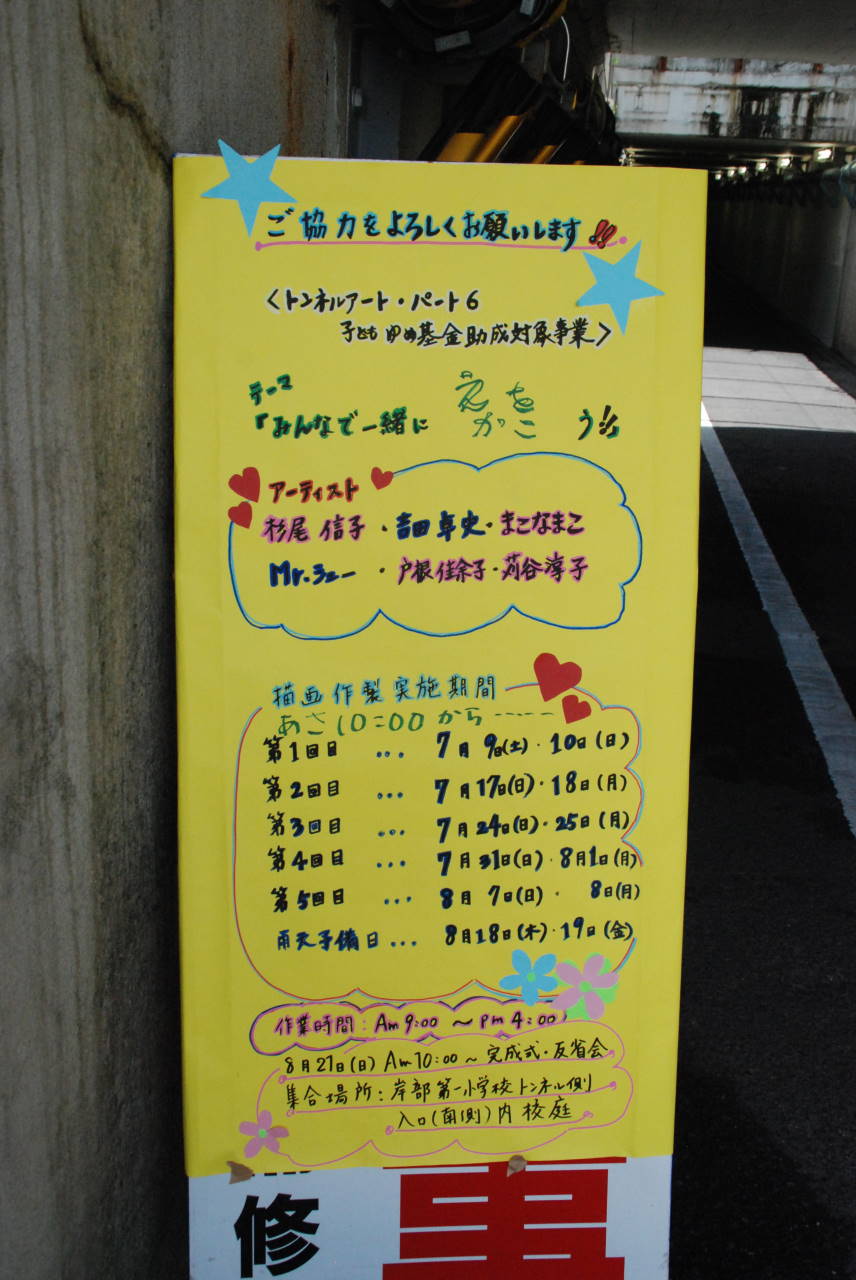 ご協力をよろしくお願いします!!
<トンネルアート・パート6
子どもゆめ基金助成対象事業>
テーマ
「みんなで一緒に えをかこう!!」
アーティスト
杉尾信子・吉田卓史・まこなまこ
Mr.シュー・戸根佳余子・苅谷淳子
描画作製実施期間
あさ10=00から-----
第1回目 ... 7月9日(土)・10日(日)
第2回目 ... 7月17日(日)・18日(月)
第3回目 ... 7月24日(日)・25日(月)
第4回目 ... 7月31日(日)・8月1日(月)
第5回目 ... 8月7日(日)・8日(月)
雨天予備日... 8月18日(木)・19日(金)
作業時間:Am9:00 ~ Pm4:00
8月21日(日) Am10:00~完成式・反省会
集合場所:岸部第一小学校トンネル側
入口(南側)内校庭
修